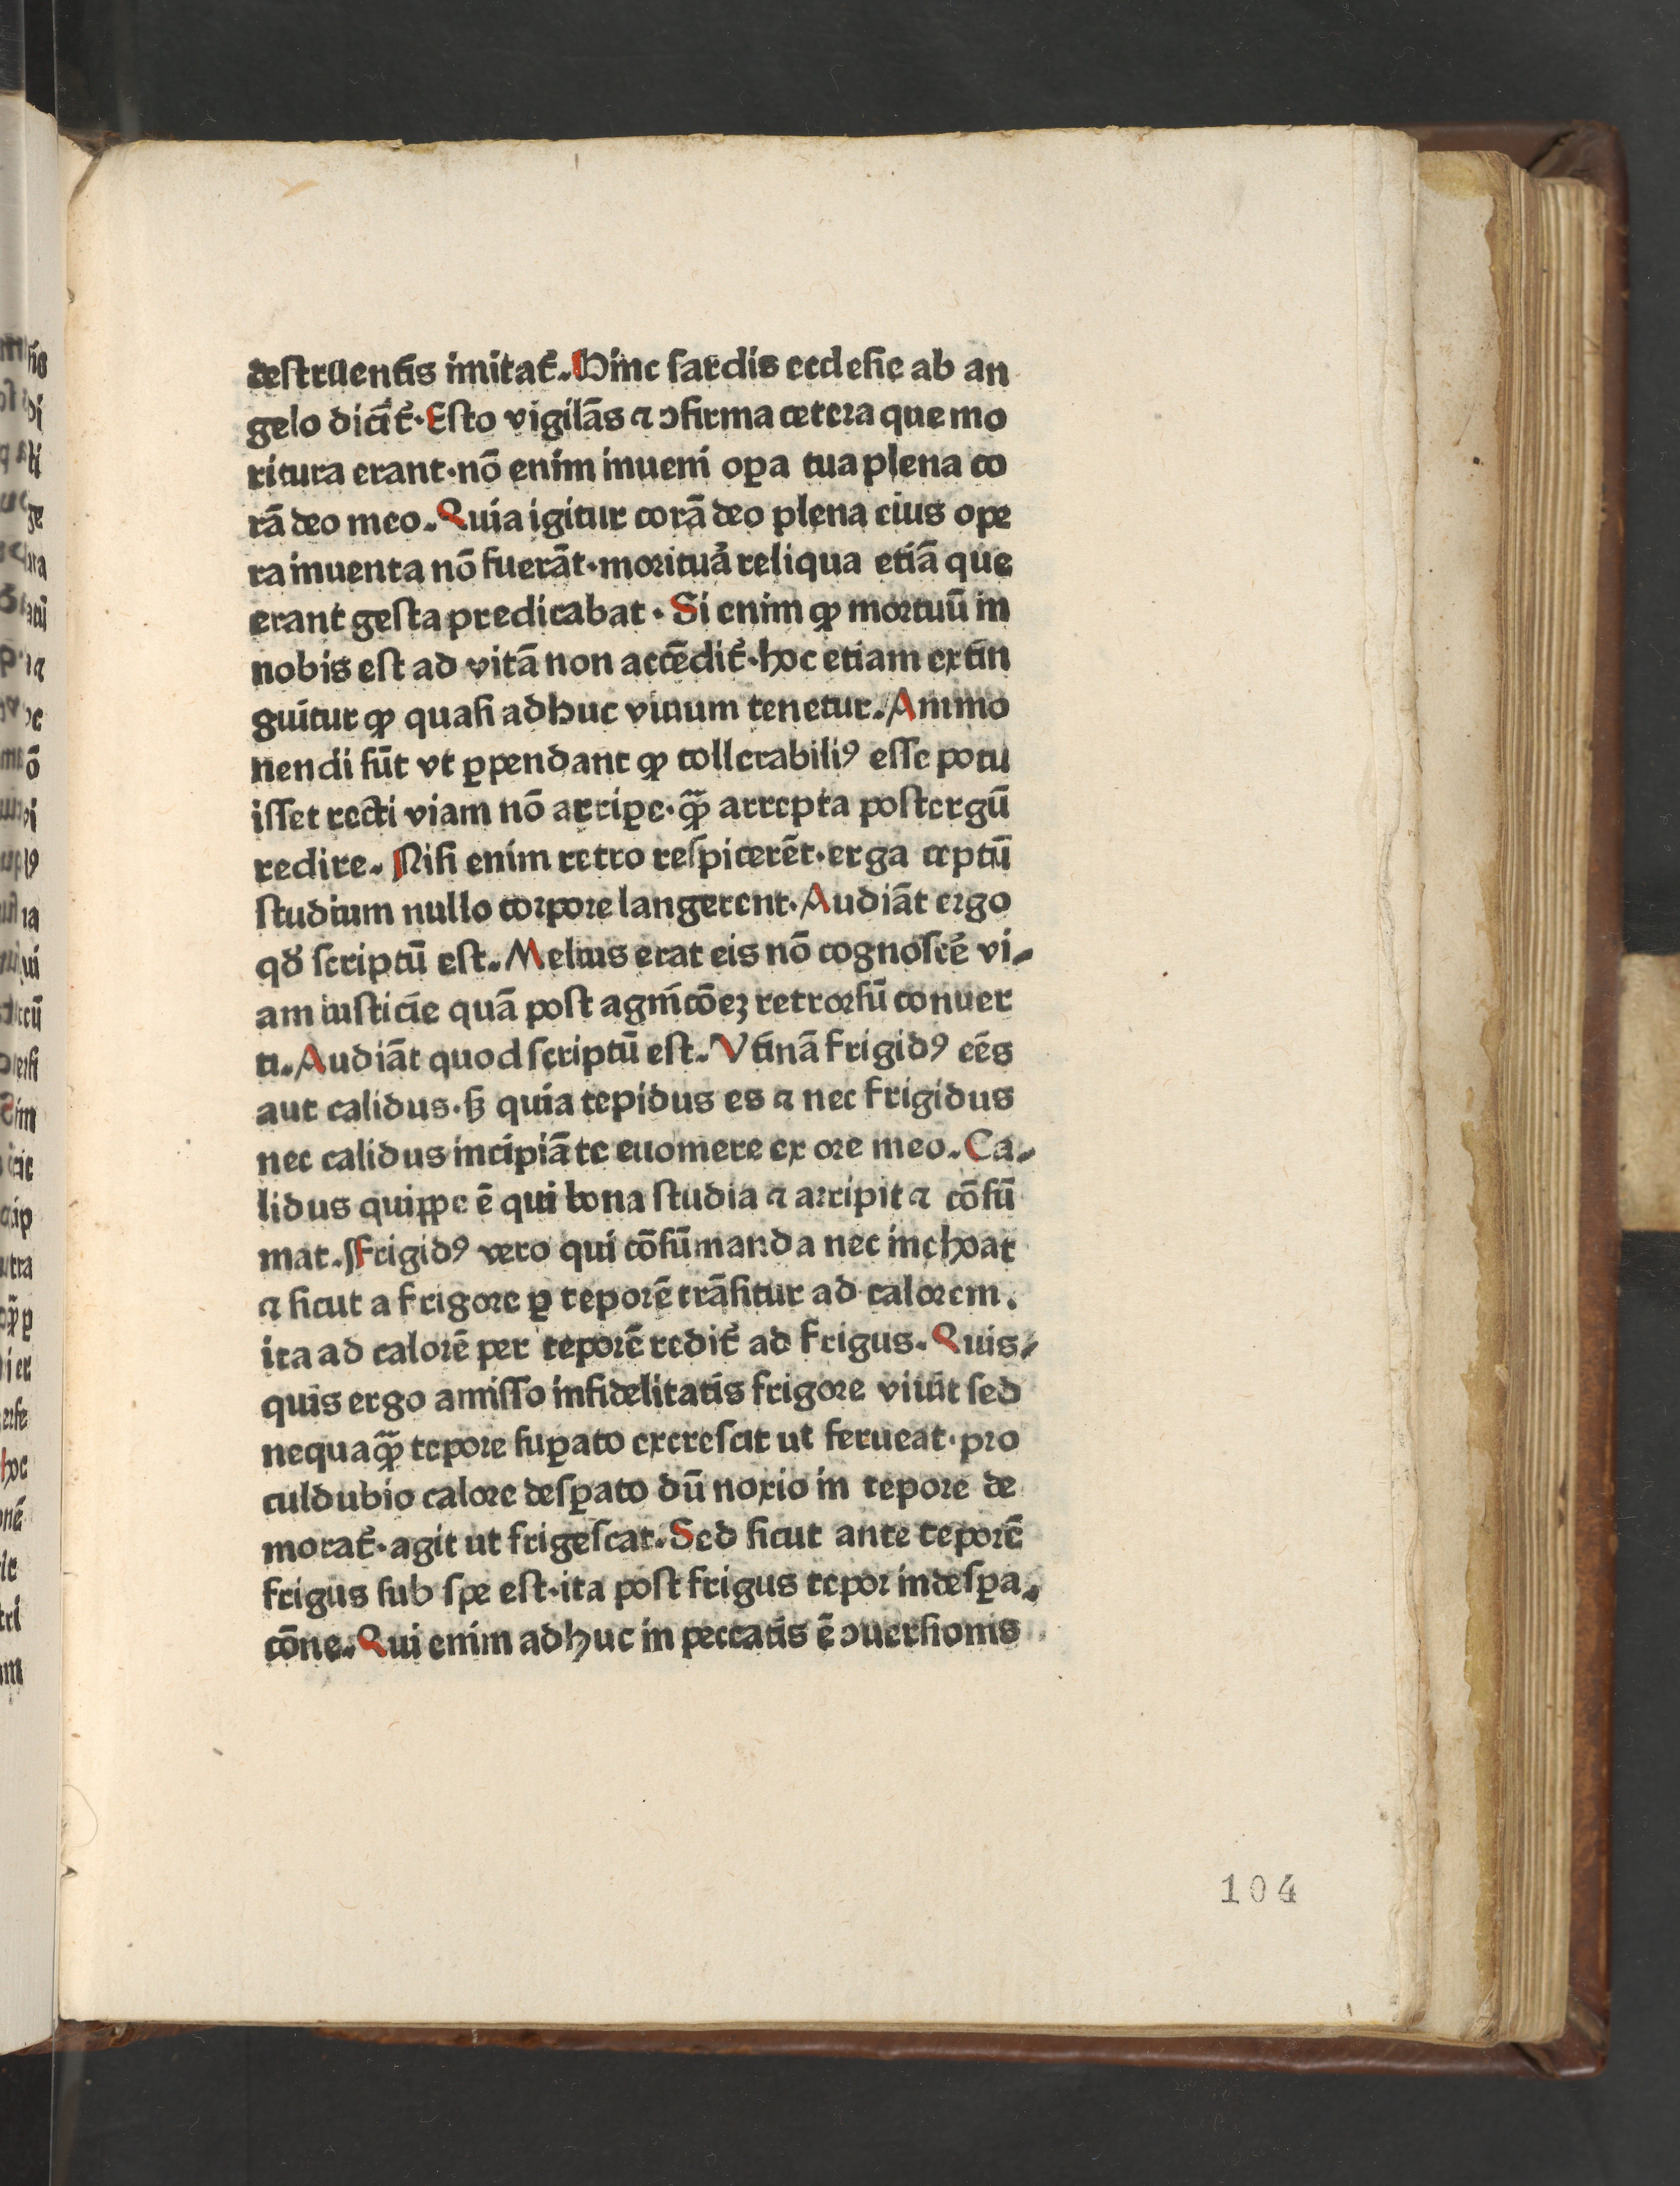 destruentis imitat᷑. Hinc sardis ecclesie ab an
gelo dicit᷑. Esto vigilās ⁊ ↄfirma cetera que mo
ritura erant. nō enim inueni oꝑa tua plena co
rā deo meo. Quia igitur corā deo plena eius ope
ra inuenta nō fuerāt. moritura᷑ reliqua etiā que
erant gesta predicabat. Si enim ꝙ mortuū in
nobis est ad vitā non accēdit᷑. hoc etiam extin
guitur ꝙ quasi adhuc viuum tenetur. Ammo
nendi sūt vt ꝑpendant ꝙ tollerabiliꝰ esse potu
isset recti viam nō arriꝑe. ꝙ̃ arrepta postergū
redire. Nisi enim retro respicerēt. erga ceptū
studium nullo corpore langerent. Audiāt ergo
qđ scriptū est. Melius erat eis nō cognosce᷑ vi-
am iusticie quā post agnitōeꝫ retrorsū conuer
ti. Audiāt quod scriptū est. Vtinā frigidꝰ eēs
aut calidus. sꝫ quia tepidus es ⁊ nec frigidus
nec calidus incipiā te euomere ex ore meo. Ca-
lidus quippe ē qui bona studia ⁊ arripit ⁊ cōsū
mat. Frigidꝰ vero qui cōsūmanda nec inchoat
⁊ sicut a frigore ꝑ teporē trāsitur ad calorem.
ita ad calorē per teporē redit᷑ ad frigus. Quis-
quis ergo amisso infidelitatis frigore viuit sed
nequaꝙ̃ tepore suꝑato excrescit ut ferueat. pro
culdubio calore desꝑato dū noxio in tepore de
morat᷑. agit ut frigescat. Sed sicut ante teporē
frigus sub spe est. ita post frigus tepor in desꝑa-
cōne. Qui enim adhuc in peccatis ē ↄuersionis
104